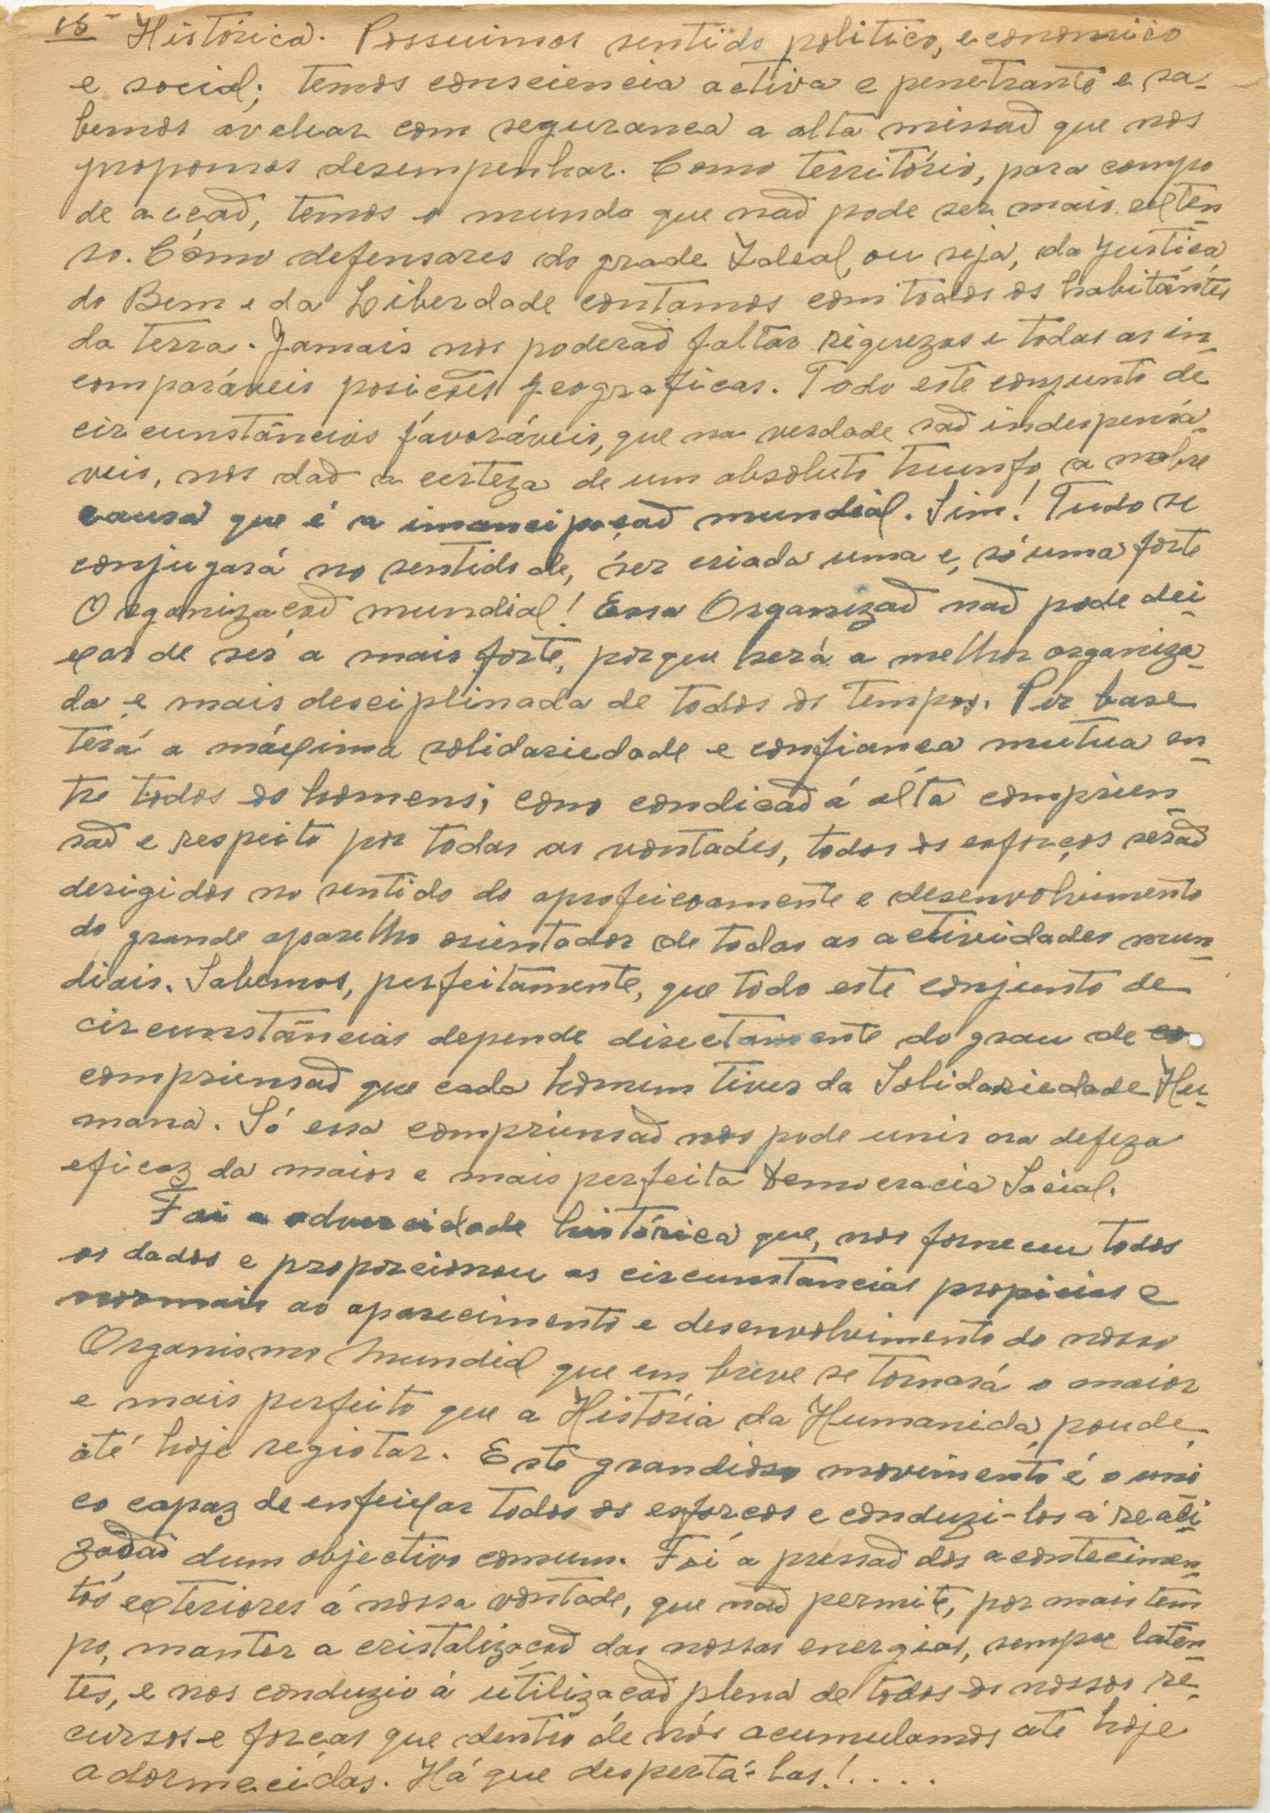 15 Histórica. Possuimos sentido politico, economico
e social; temos consciencia activa e penetrante e sa-
bemos aveluar com seguranca a alta missaõ que nos
propomos desempenhar. Como território, para campo
de acçaõ, temos o mundo que naõ pode ser mais exten-
so. Cómo defensares do grade Ideal, ou seja, da Justica
do Bem e da Liberdade contamos com todos os habitántes
da terra. Jamais nos poderaõ faltar riquezas e todas as in-
comparáveis posicões geograficas. Todo este conjunto de
circunstâncias fávoráveis, que na verdade saõ indespensá-
veis, nos daõ a certeza de um absoluto triunfo, a nobre
causa que é a imancipaçaõ mundial. Sim! Tudo se
conjugará no sentido de, ser criada uma e, só uma forte
Organizacaõ mundial! Essa Organizaõ naõ pode dei-
xar de ser a mais forte, porque será a melhor organiza-
da e mais desciplinada de todos os tempos. Pór base
terá a máxima solidariedade e confianca mutua en-
tre todos os homens; como condicaõ á alta comprien-
saõ e respeito por todas as vontades, todos os esforços seraõ
derigidos no sentido do aprofeicoamente e desenvolvimento
do grande aparelho orientador de todas as actividades mun-
diais. Sabemos, perfeitamente, que todo este conjunto de
circunstâncias depende directamente do grau de co
compriensaõ que cada homem tiver da Solidariedade Hu-
mana. Só essa compriensaõ nos pode unir na defeza
eficaz da maior e mais perfeita Democracia Social.
Foi a adversidade histórica que, nos forneceu todos
os dados e proporcionou as circunstancias propicias e
normais ao aparecimento e desenvolvimento do nosso
Organismo Mundial que em breve se tornará o maior
e mais perfeito que a História da Humanida, poude
até hoje registar. Este grandioso movimento é o uni
co capaz de enfeixar todos os esforcos e conduzi-los á reali-
zaõaõ dum objectivo comum. Foi a pressaõ dos acontecimen-
tos exteriores á nossa vontade, que naõ permite, por mais tem
po, manter a cristalizacaõ das nossas energias, sempre laten-
tes, e nos conduziu á utilizacaõ plena de todos os nossos re-
cursos e forcas que dentro de nós acumulamos até hoje
adormecidas. Há que despertá-las!....